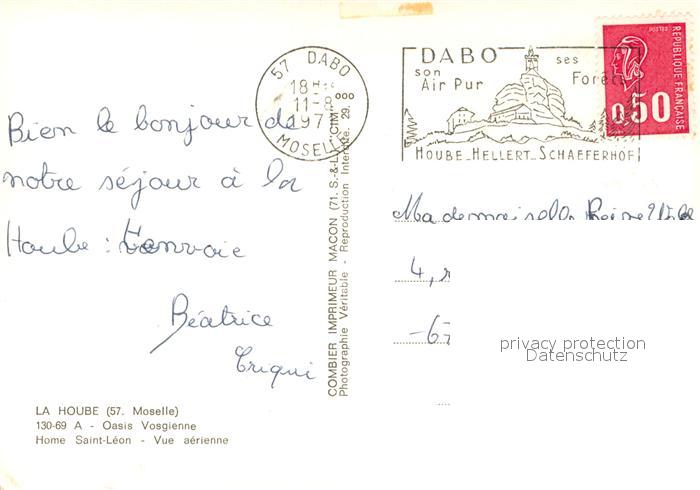 Bien le bonjour de
notre séjour à la
Hoube :
Béatrice
Criqui
LA HOUBE (57. Moselle)
130-69 A - Oasis Vosgienne
Home Saint-Léon - Vue aérienne
COMBIER IMPRIMEUR MACON (71. S.-&-L.) "CIM"
Photographie Véritable - Reproduction Interdite. 29.
57 DABO
18H
11-8
197
MOSELLE
DABO
son
Air Pur
ses
Forêts
HOUBE_HELLERT_SCHAEFERHOF
POSTES
REPUBLIQUE FRANÇAISE
0,50
Mademoiselle
4, r
-67
privacy protection
Datenschutz